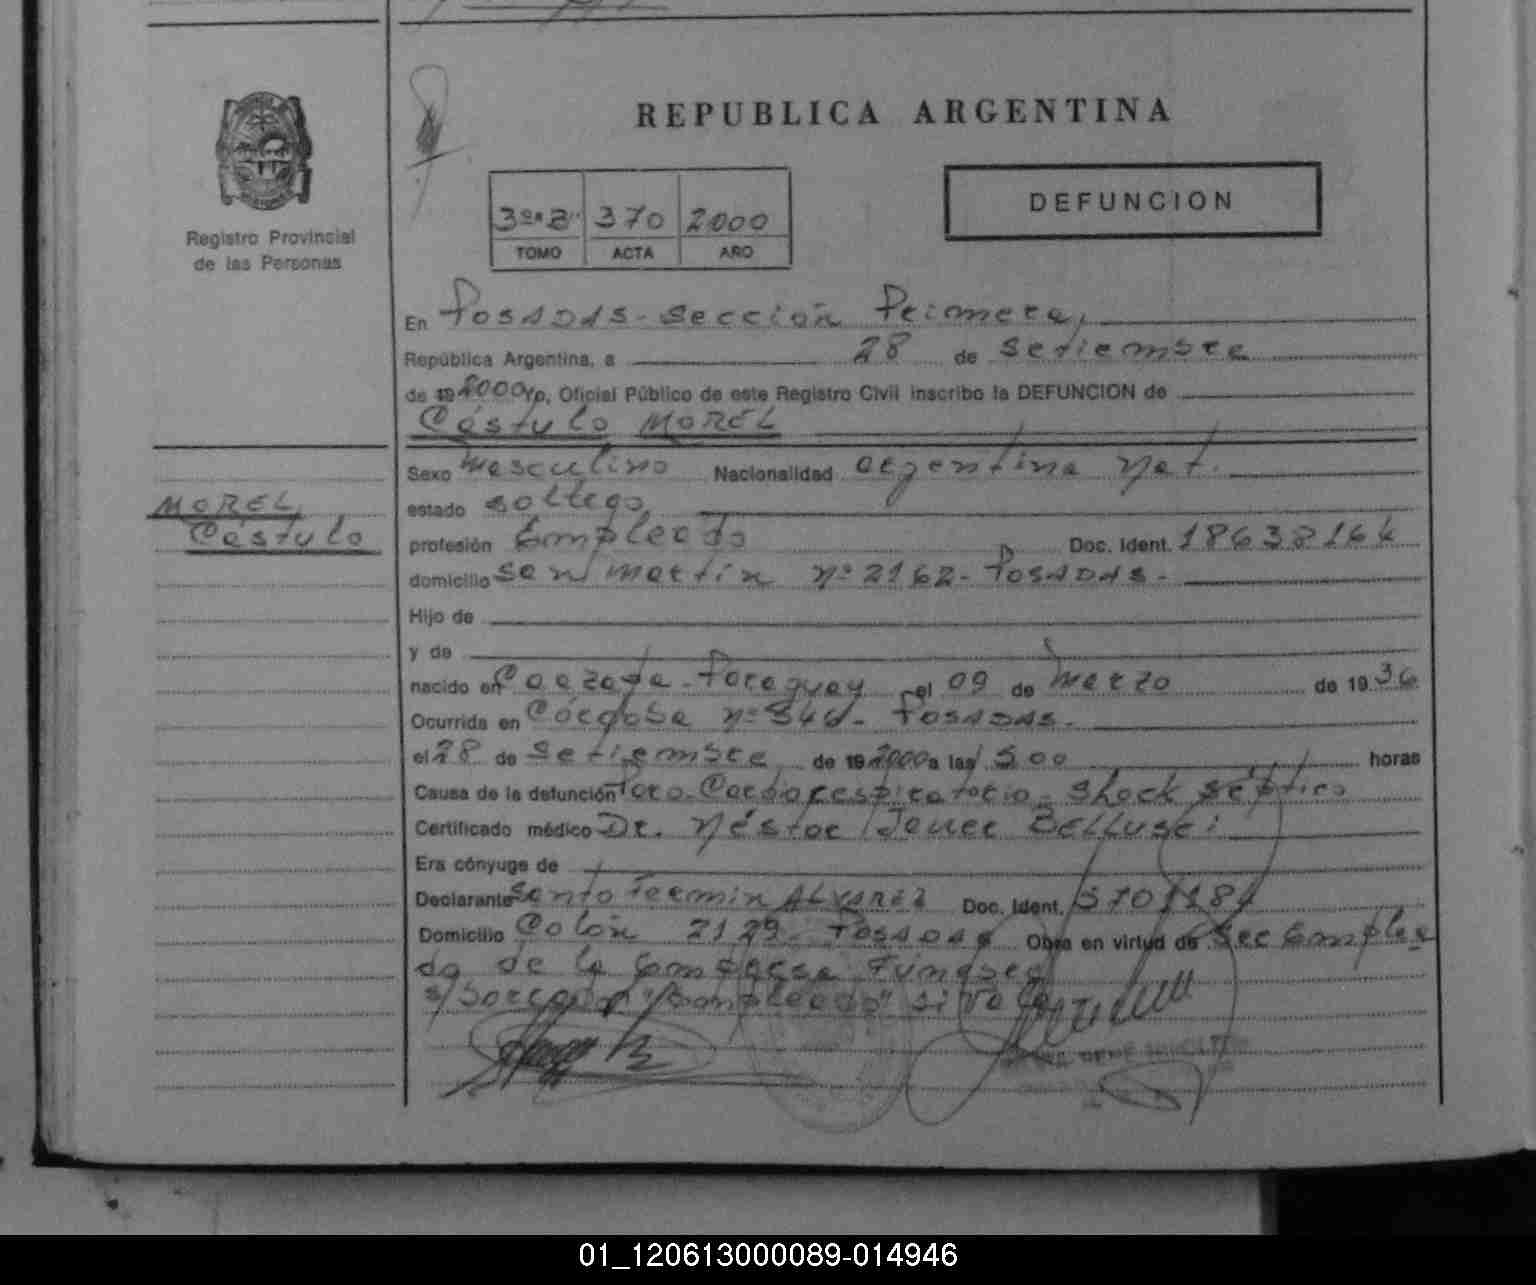 REPUBLICA ARGENTINA
DEFUNCION
3º "B" 370 2000
TOMO ACTA AÑO
Registro Provincial
de las Personas
En Posadas - Sección Primera,
República Argentina, a 28 de Setiembre
de 19 2000 Yo, Oficial Público de este Registro Civil inscribo la DEFUNCION de
Cástulo MOREL
Sexo masculino Nacionalidad argentina Nat.
MOREL
Cástulo
estado soltero
profesión Empleado Doc. Ident. 18638164
domicilio San Martín Nº 2162 - Posadas -
Hijo de
y de
nacido en - Paraguay el 09 de Marzo de 19 36
Ocurrida en Córdoba Nº - Posadas -
el 28 de Setiembre de 19 2000 a las horas
Causa de la defunción Paro Cardiorespiratorio - Shock séptico
Certificado médico Dr. Néstor Bellusci
Era cónyuge de
Declarante Santo Fermín ALVAREZ Doc. Ident.
Domicilio Colón 2129 Posadas Obra en virtud de Ser Emplea
do de la Funebre
"Empleado" si vale
01_120613000089-014946